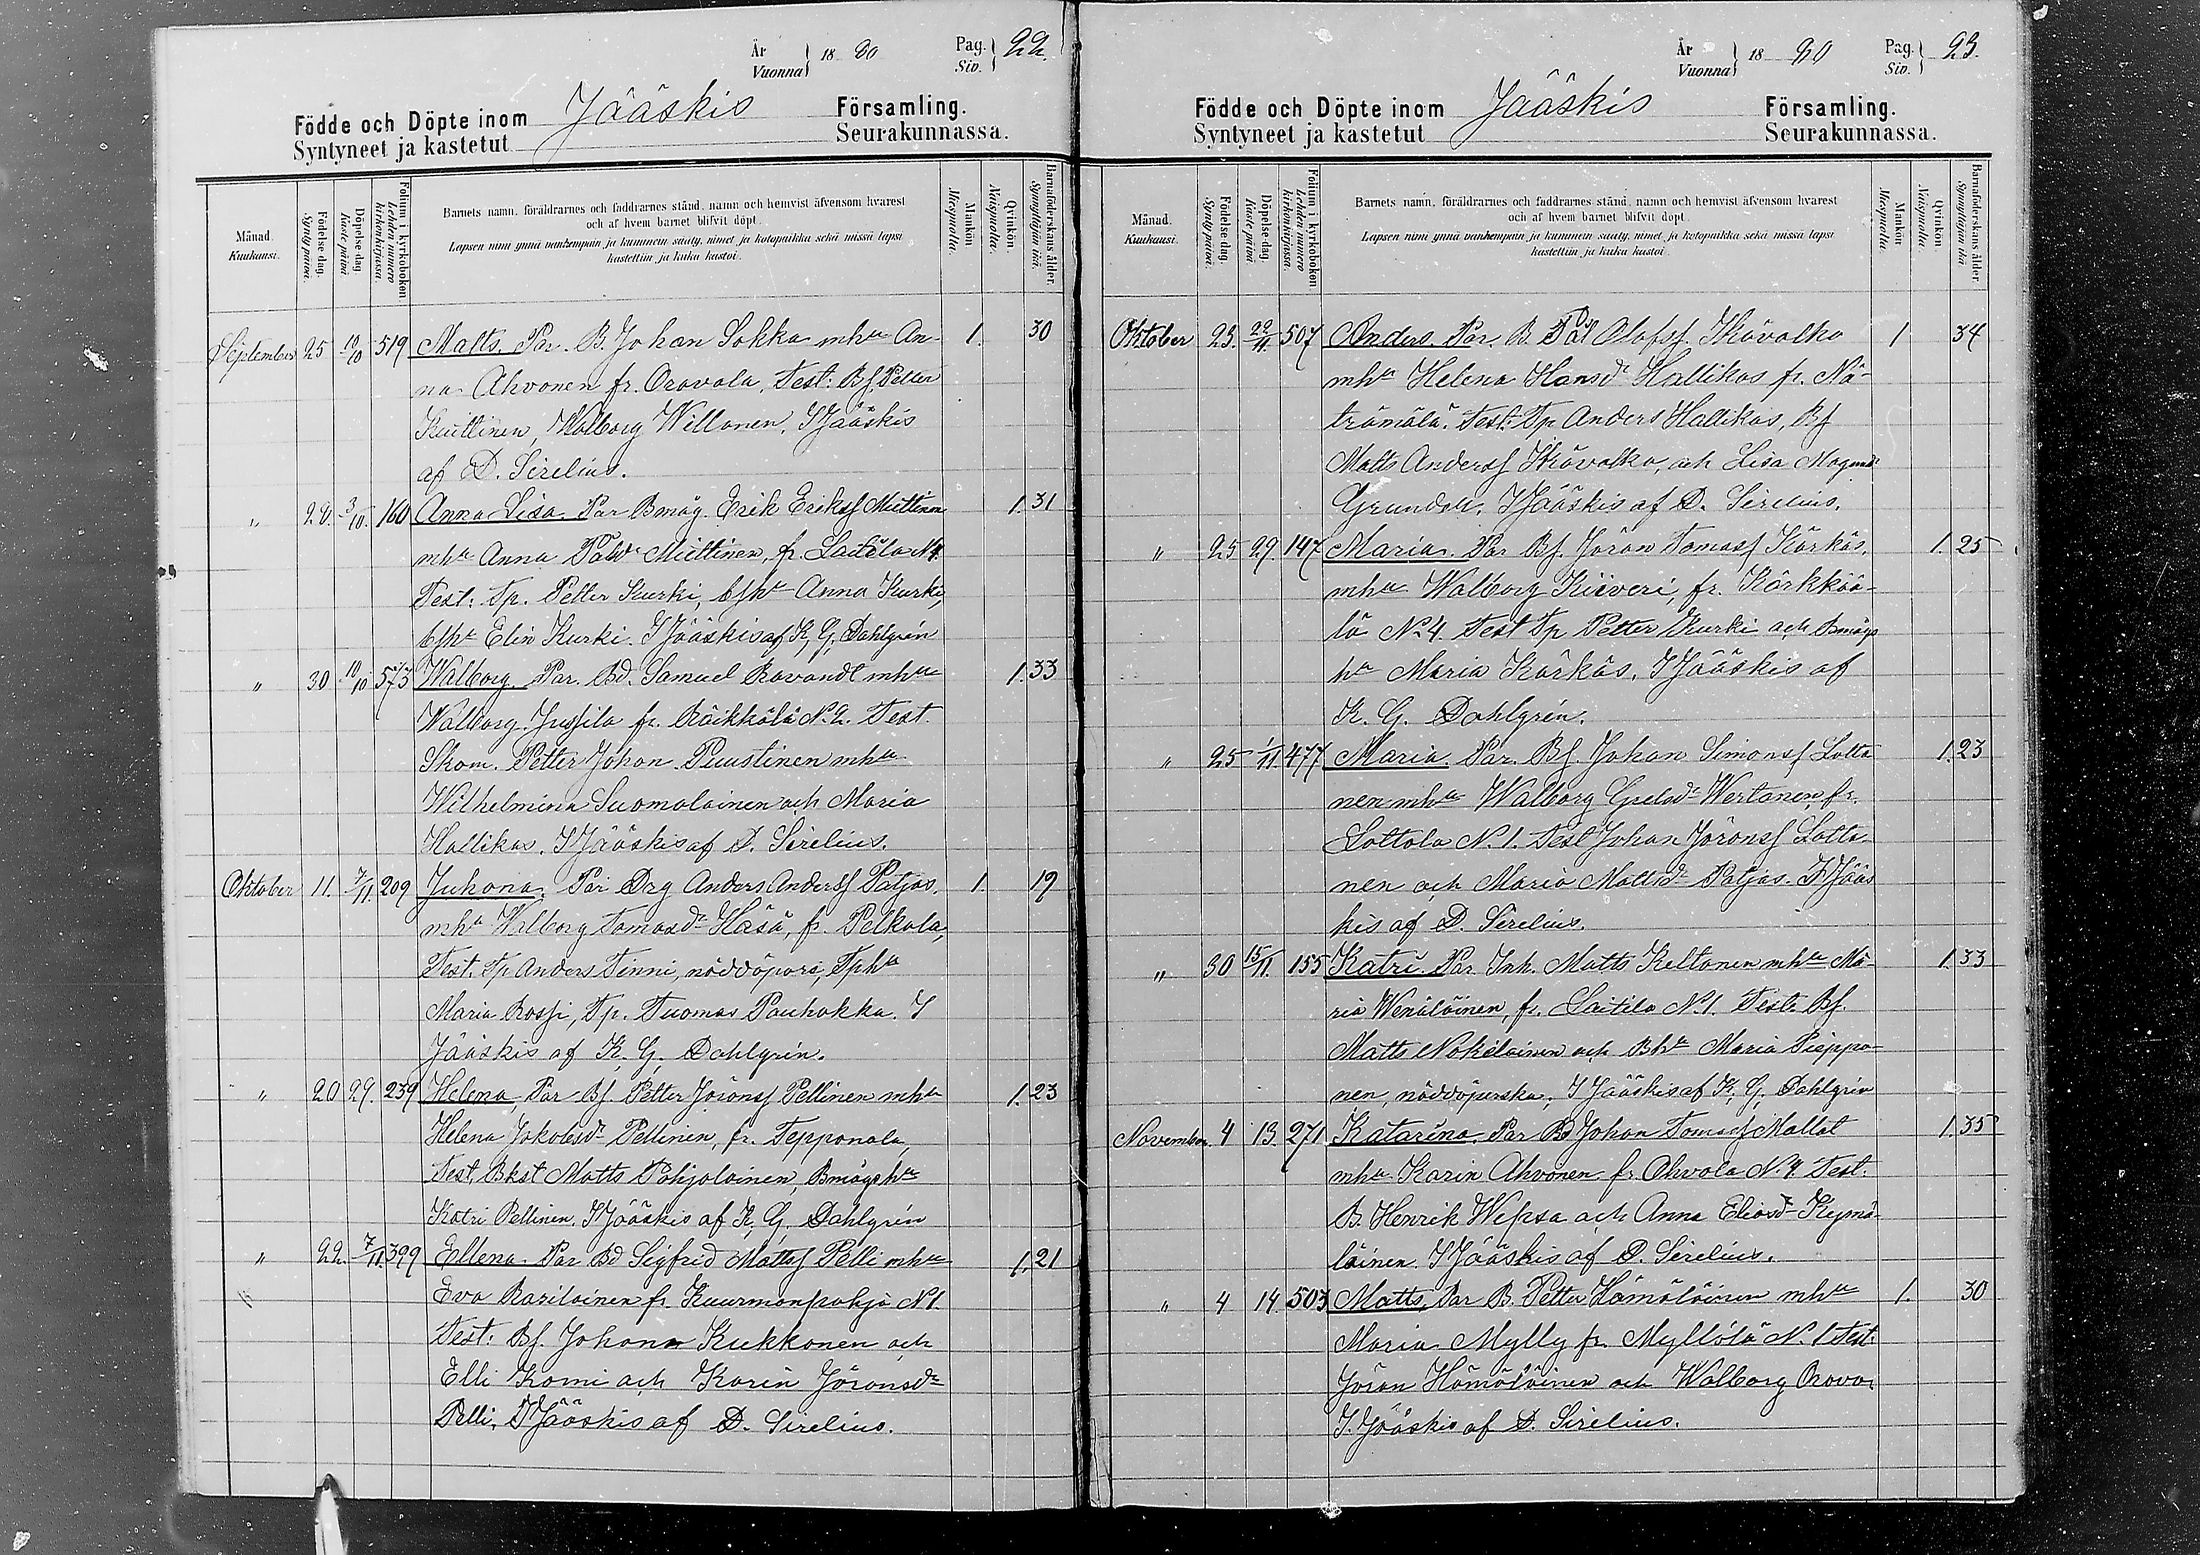 År
Vuonna } 18 80 Pag.
Siv. } 22.
Födde och Döpte inom Jääskis Församling.
Syntyneet ja kastetut Seurakunnassa.
Månad. Kuukausi.
Födelse dag. Syntymäpäivä.
Döpelse dag. Kaste päivä
Folium i kyrkoboken Lehden numero kirkonkirjassa.
Barnets namn, föräldrarnes och faddrarnes stånd, namn och hemvist äfvensom hvarest
och af hvem barnet blifvit döpt.
Lapsen nimi ynnä vanhempain ja kummein sääty, nimet ja kotopaikka sekä missä lapsi
kastettiin ja kuka kastoi.
Mankön Miespuolia.
Qvinkön. Naispuolia.
Barnaföderskans ålder. Synnyttäjän ikä.
September 25 10/10 519 Matts. Par. B. Johan Sokka mhu An- 1. 30
na Ahvonen fr. Oravala, Test: Bf. Petter
Kuittinen, Walborg Willanen. I Jääskis
af D. Sirelius.
" 28. 3/10. 160 Anna Lisa. Par Bmåg. Erik Eriksf Miettinen 1. 31
mhu Anna Påhlsdr Miettinen, fr. Laitila N4
Test: Tp. Petter Kurki, bfhu Anna Kurki,
bfhu Elin Kurki. I Jääskis af K. G. Dahlgrén
" 30 10/10 573 Walborg. Par. Bd. Samuel Ravandt mhu 1. 33
Walborg Jussila fr. Räikkölä N. 2. Test.
Skom. Petter Johan Puustinen mhu
Wilhelmina Suomalainen och Maria
Hallikas. I Jääskis af D. Sirelius.
Oktober 11. 7/11. 209 Juhana. Par Drg Anders Andersf Patjas. 1. 19
mhu Walborg Tomasdr Häsä, fr. Pelkola,
Test. Tp Anders Tinni, nöddöpare, Tphu
Maria Rossi, Tp. Tuomas Pauhakka. I
Jääskis af K. G. Dahlgrén.
" 20 29. 239 Helena, Par Bf. Petter Jöransf Pellinen mhu 1. 23
Helena Jakobsdr Pellinen, fr. Tepponala,
Test. Bkst Matts Pohjolainen, Bmågshu
Katri Pellinen. I Jääskis af K. G. Dahlgrén
" 22. 7/11 399 Ellena. Par Bd Sigfrid Mattsf Pelli mhu 1. 21
Eva Rasilainen fr. Kuurmanpohja N1.
Test: Bf. Johan Kukkonen och
Elli Komi och Karin Jöransdr
Pelli, I Jääskis af D. Sirelius.
År
Vuonna } 18 80 Pag.
Siv. } 23.
Födde och Döpte inom Jääskis Församling.
Syntyneet ja kastetut Seurakunnassa.
Månad. Kuukausi.
Födelse dag. Syntymäpäivä.
Döpelse dag. Kaste päivä
Folium i kyrkoboken Lehden numero kirkonkirjassa.
Barnets namn, föräldrarnes och faddrarnes stånd, namn och hemvist äfvensom hvarest
och af hvem barnet blifvit döpt.
Lapsen nimi ynnä vanhempain ja kummein sääty, nimet ja kotopaikka sekä missä lapsi
kastettiin ja kuka kastoi.
Mankön Miespuolia.
Qvinkön. Naispuolia.
Barnaföderskans ålder. Synnyttäjän ikä
Oktober 23. 22/11. 507 Anders. Par. B. Pål Olofsf. Härävalko 1 34
mhu Helena Hansdr Hallikas fr. Nä-
trämälä. Test: Tp Anders Hallikas, Bf
Matts Andersf Härävalko, och Lisa Magnusdr
Grundell. I Jääskis af D. Sirelius.
" 25 29. 147 Maria. Par Bf. Jöran Tomasf Kärkäs. 1. 25
mhu Walborg Kiiveri, fr. Kärkkää-
lä N. 4. Test Tp Petter Kurki och Bmågs
hu Maria Kärkäs. I Jääskis af
K. G. Dahlgrén.
" 25 1/11. 477 Maria. Par. Bf. Johan Simonsf Lotta- 1. 23
nen mhu Walborg Grelsdr Wertanen fr.
Lottola N. 1. Test Johan Jöransf Lotta-
nen och Maria Mattsdr Patjas. I Jääs
kis af D. Sirelius.
" 30 15/11. 155 Katri. Par Inh. Matts Keltanen mhu Ma- 1. 33
ria Wenäläinen, fr. Laitila N. 1. Test: Bf.
Matts Nokelainen och Bhu Maria Pieppo-
nen, nöddöperska, I Jääskis af K. G. Dahlgrén
November. 4 13. 271 Katarina. Par Bd Johan Tomasf Mallat 1. 35
mhu Karin Ahvonen fr. Ahvola N. 4. Test:
B. Henrik Wepsa och Anna Eliasdr Kejmä-
läinen. I Jääskis af D. Sirelius.
" 4 14. 503 Matts. Par B. Petter Hämäläinen mhu 1. 30
Maria Mylly fr. Myllölä N. 1 Test:
Jöran Hämäläinen och Walborg Orava
I. Jääskis af D. Sirelius.